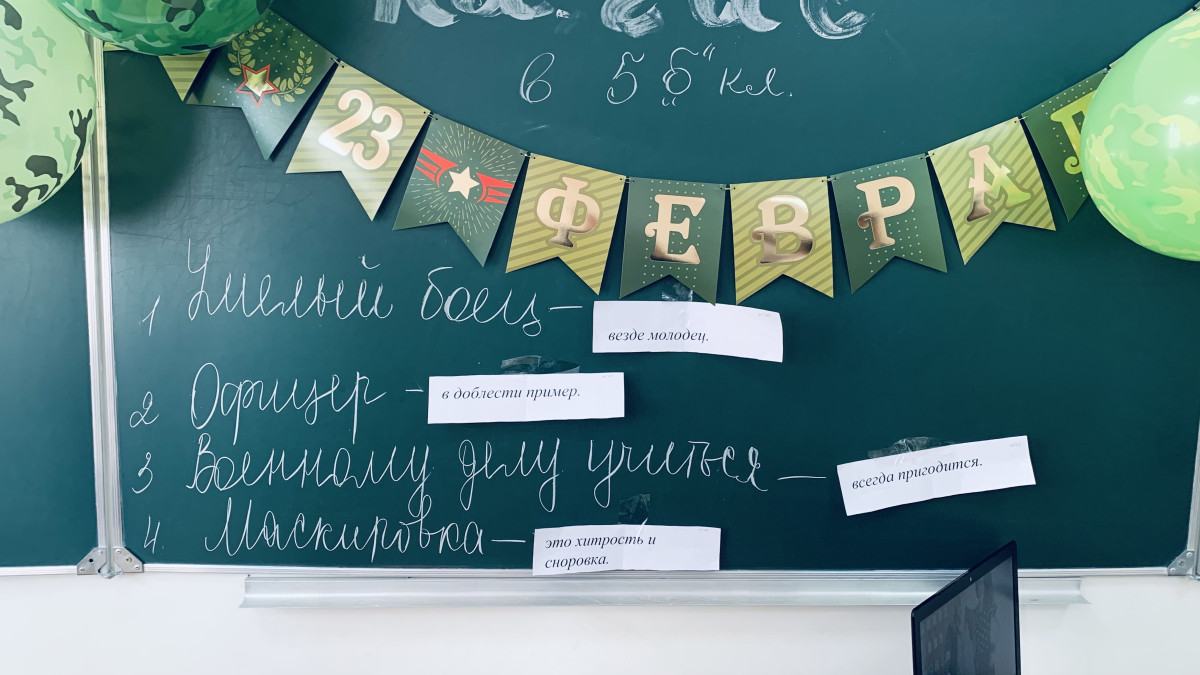 в 5 „б" кл.
23 ФЕВРАЛ
1 Умелый боец – везде молодец.
2 Офицер – в доблести пример.
3 Военному делу учиться – всегда пригодится.
4. Маскировка – это хитрость и
сноровка.